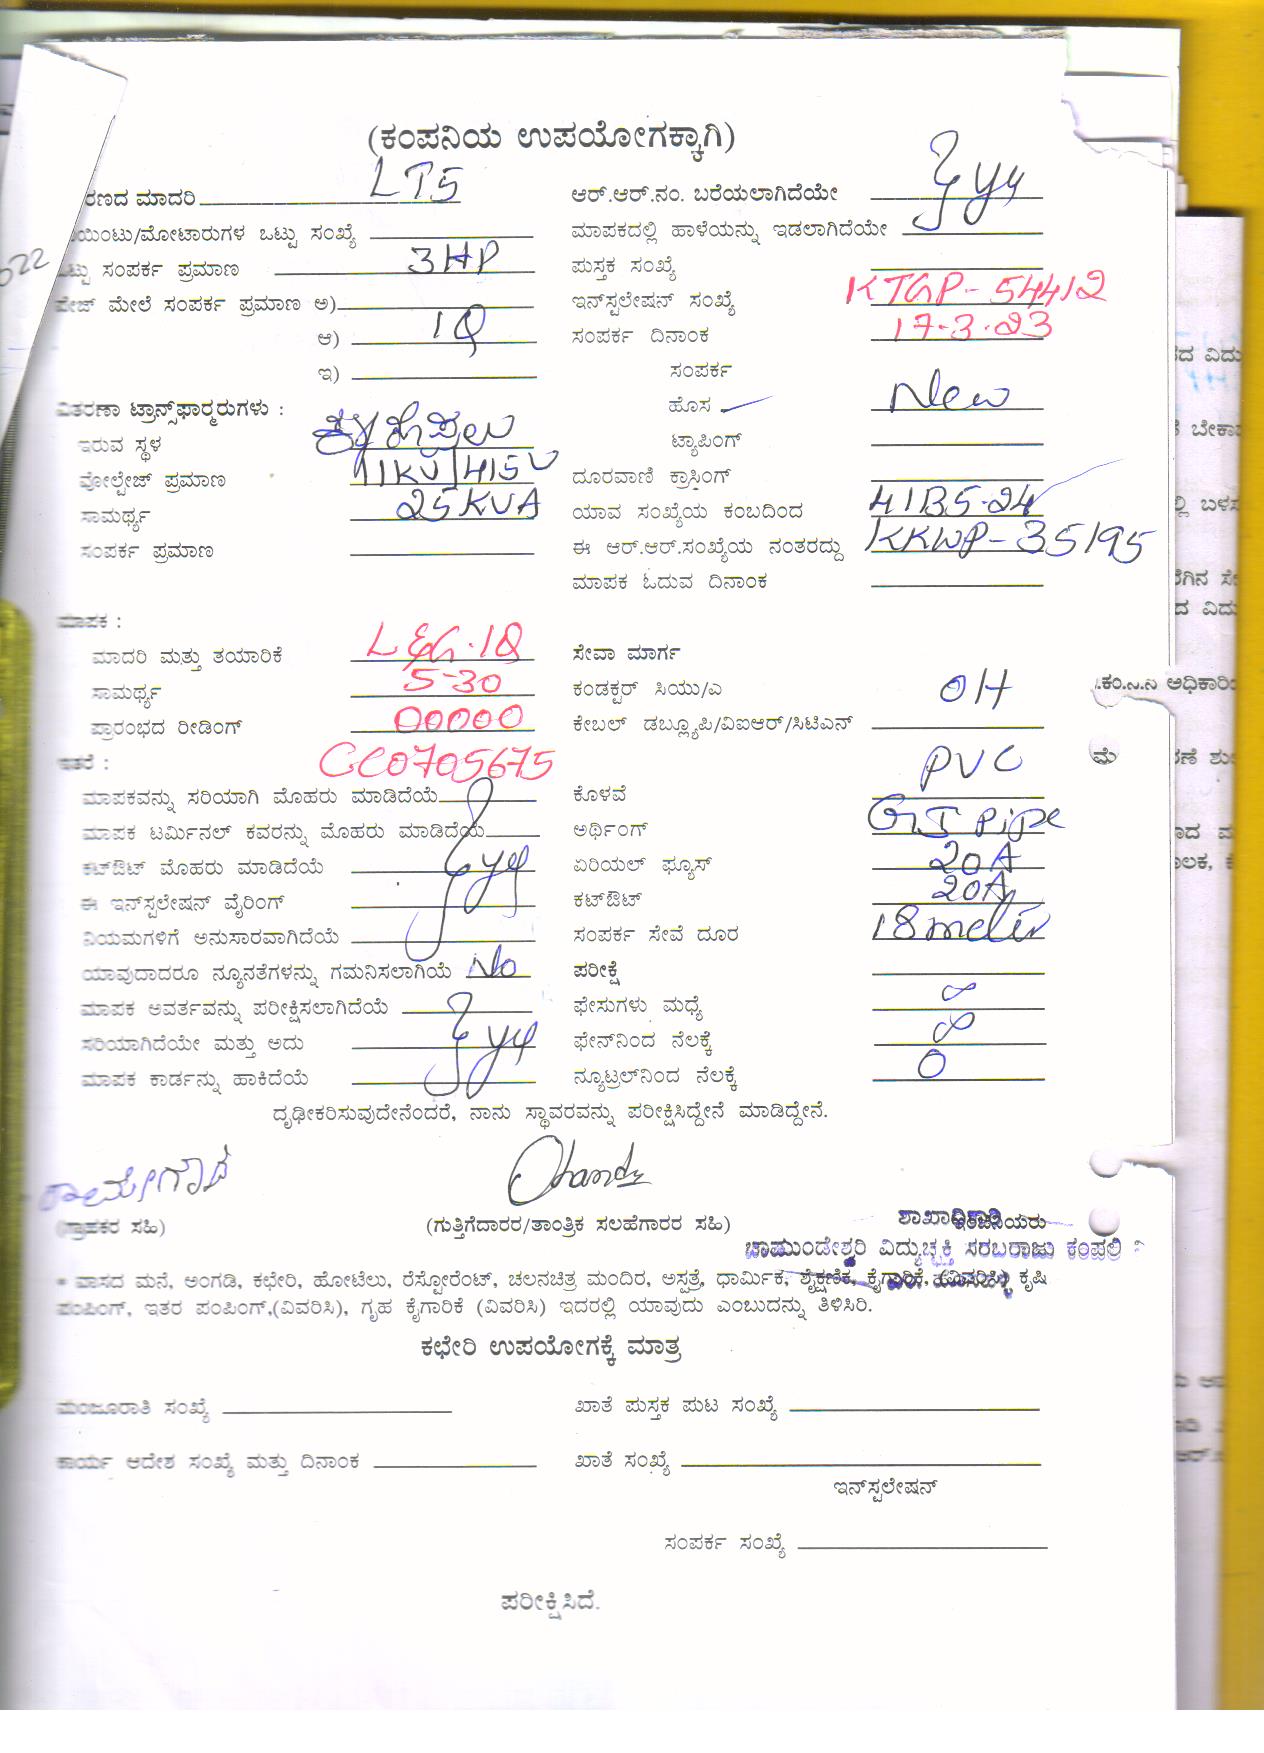 (ಕಂಪನಿಯ ಉಪಯೋಗಕ್ಕಾಗಿ)
ರಣದ ಮಾದರಿ LT5 ಆರ್.ಆರ್.ನಂ. ಬರೆಯಲಾಗಿದೆಯೇ
ಯಿಂಟು/ಮೋಟಾರುಗಳ ಒಟ್ಟು ಸಂಖ್ಯೆ ಮಾಪಕದಲ್ಲಿ ಹಾಳೆಯನ್ನು ಇಡಲಾಗಿದೆಯೇ
022
ಒಟ್ಟು ಸಂಪರ್ಕ ಪ್ರಮಾಣ 3HP ಪುಸ್ತಕ ಸಂಖ್ಯೆ
ಫೇಜ್ ಮೇಲೆ ಸಂಪರ್ಕ ಪ್ರಮಾಣ ಅ) ಇನ್‌ಸ್ಟಲೇಷನ್ ಸಂಖ್ಯೆ KTGP-54412
ಆ) 1Q ಸಂಪರ್ಕ ದಿನಾಂಕ 17-3-23
ಇ) ಸಂಪರ್ಕ
ವಿತರಣಾ ಟ್ರಾನ್ಸ್‌ಫಾರ್‍ಮರುಗಳು : ಹೊಸ New
ಇರುವ ಸ್ಥಳ ಟ್ಯಾಪಿಂಗ್
ವೋಲ್ಟೇಜ್ ಪ್ರಮಾಣ 11KV/415V ದೂರವಾಣಿ ಕ್ರಾಸಿಂಗ್
ಸಾಮರ್ಥ್ಯ 25KVA ಯಾವ ಸಂಖ್ಯೆಯ ಕಂಬದಿಂದ 41BS-24
ಸಂಪರ್ಕ ಪ್ರಮಾಣ ಈ ಆರ್.ಆರ್.ಸಂಖ್ಯೆಯ ನಂತರದ್ದು KKWP-35195
ಮಾಪಕ ಓದುವ ದಿನಾಂಕ
ಮಾಪಕ :
ಮಾದರಿ ಮತ್ತು ತಯಾರಿಕೆ L&G-1Q ಸೇವಾ ಮಾರ್ಗ
ಸಾಮರ್ಥ್ಯ 5-30 ಕಂಡಕ್ಟರ್ ಸಿಯು/ಎ OH
ಪ್ರಾರಂಭದ ರೀಡಿಂಗ್ 00000 ಕೇಬಲ್ ಡಬ್ಲ್ಯೂಪಿ/ವಿಐಆರ್/ಸಿಟಿಎನ್
ಇತರೆ : CC0705675
ಮಾಪಕವನ್ನು ಸರಿಯಾಗಿ ಮೊಹರು ಮಾಡಿದೆಯೆ ಕೊಳವೆ PVC
ಮಾಪಕ ಟರ್ಮಿನಲ್ ಕವರನ್ನು ಮೊಹರು ಮಾಡಿದೆಯೆ ಅರ್ಥಿಂಗ್ GI Pipe
ಕಟ್‌ಔಟ್ ಮೊಹರು ಮಾಡಿದೆಯೆ ಏರಿಯಲ್ ಫ್ಯೂಸ್ 20A
ಈ ಇನ್‌ಸ್ಟಲೇಷನ್ ವೈರಿಂಗ್ ಕಟ್‌ಔಟ್ 20A
ನಿಯಮಗಳಿಗೆ ಅನುಸಾರವಾಗಿದೆಯೆ ಸಂಪರ್ಕ ಸೇವೆ ದೂರ 18 meter
ಯಾವುದಾದರೂ ನ್ಯೂನತೆಗಳನ್ನು ಗಮನಿಸಲಾಗಿಯೆ No ಪರೀಕ್ಷೆ
ಮಾಪಕ ಅವರ್ತವನ್ನು ಪರೀಕ್ಷಿಸಲಾಗಿದೆಯೆ ಫೇಸುಗಳು ಮಧ್ಯೆ ∞
ಸರಿಯಾಗಿದೆಯೇ ಮತ್ತು ಅದು ಫೇನ್‌ನಿಂದ ನೆಲಕ್ಕೆ ∞
ಮಾಪಕ ಕಾರ್ಡನ್ನು ಹಾಕಿದೆಯೆ ನ್ಯೂಟ್ರಲ್‌ನಿಂದ ನೆಲಕ್ಕೆ 0
ದೃಢೀಕರಿಸುವುದೇನೆಂದರೆ, ನಾನು ಸ್ಥಾವರವನ್ನು ಪರೀಕ್ಷಿಸಿದ್ದೇನೆ ಮಾಡಿದ್ದೇನೆ.
ರಾಮೇಗೌಡ
(ಗ್ರಾಹಕರ ಸಹಿ) (ಗುತ್ತಿಗೆದಾರರ/ತಾಂತ್ರಿಕ ಸಲಹೆಗಾರರ ಸಹಿ) ಶಾಖಾಧಿಕಾರಿ
ಚಾಮುಂಡೇಶ್ವರಿ ವಿದ್ಯುಚ್ಛಕ್ತಿ ಸರಬರಾಜು ಕಂಪನಿ
* ವಾಸದ ಮನೆ, ಅಂಗಡಿ, ಕಛೇರಿ, ಹೋಟೆಲು, ರೆಸ್ಟೋರೆಂಟ್, ಚಲನಚಿತ್ರ ಮಂದಿರ, ಅಸ್ಪತ್ರೆ, ಧಾರ್ಮಿಕ, ಶೈಕ್ಷಣಿಕ, ಕೈಗಾರಿಕೆ, (ವಿವರಿಸಿ) ಕೃಷಿ
ಪಂಪಿಂಗ್, ಇತರ ಪಂಪಿಂಗ್,(ವಿವರಿಸಿ), ಗೃಹ ಕೈಗಾರಿಕೆ (ವಿವರಿಸಿ) ಇದರಲ್ಲಿ ಯಾವುದು ಎಂಬುದನ್ನು ತಿಳಿಸಿರಿ.
ಕಛೇರಿ ಉಪಯೋಗಕ್ಕೆ ಮಾತ್ರ
ಮಂಜೂರಾತಿ ಸಂಖ್ಯೆ ಖಾತೆ ಪುಸ್ತಕ ಪುಟ ಸಂಖ್ಯೆ
ಕಾರ್ಯ ಆದೇಶ ಸಂಖ್ಯೆ ಮತ್ತು ದಿನಾಂಕ ಖಾತೆ ಸಂಖ್ಯೆ
ಇನ್‌ಸ್ಟಲೇಷನ್
ಸಂಪರ್ಕ ಸಂಖ್ಯೆ
ಪರೀಕ್ಷಿಸಿದೆ.